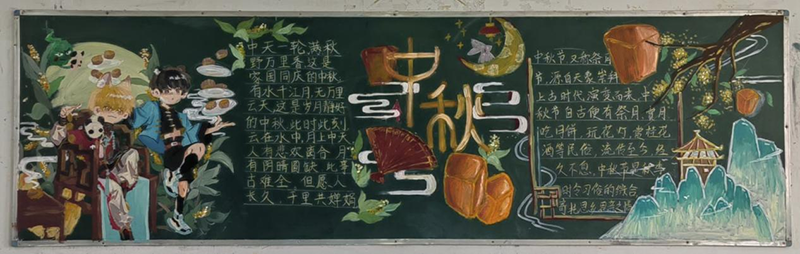 中天一轮满秋
野万里香这是
家国同庆的中秋
有水千江月无万里
云天,这是岁月静好
的中秋此时此刻
云在水中,月上中天
人有悲欢离合,月
有阴晴圆缺,此事
古难全,但愿人
长久,千里共婵娟
中秋
中秋节又称祭月
节,源自天象崇拜
上古时代,演变而来,中
秋节自古便有祭月,赏月
吃月饼,玩花灯,赏桂花
酒等风俗,流传至今,经
久不息,中秋节是秋季
时令习俗的综合